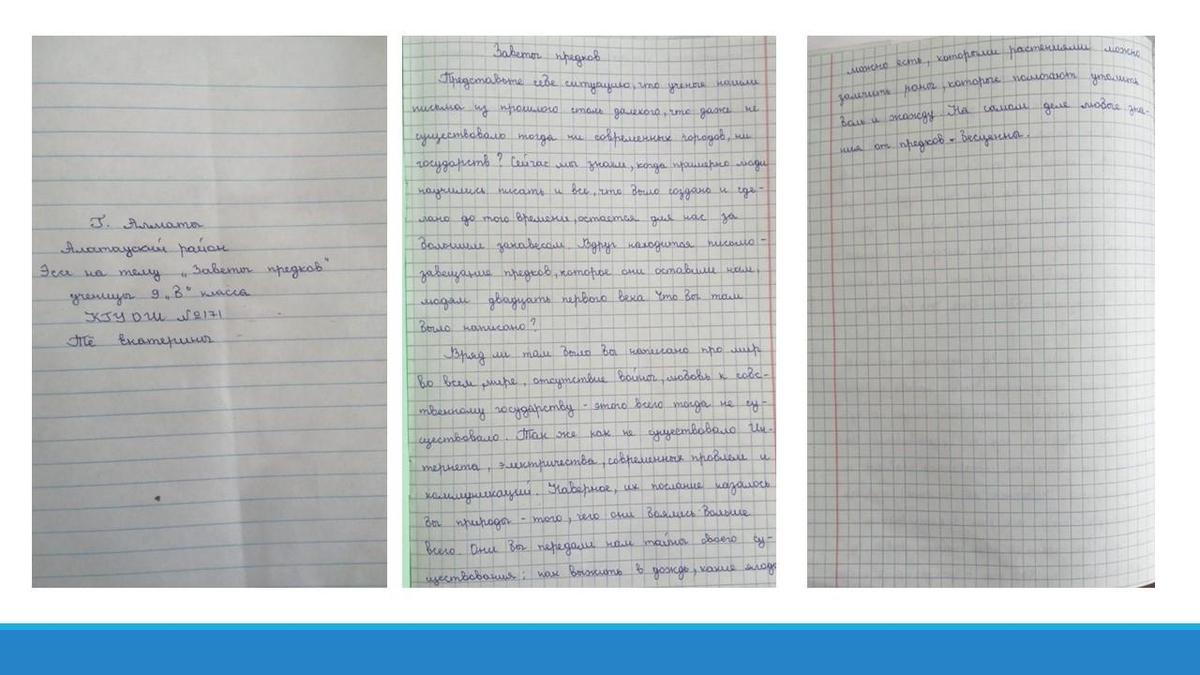 Г. Алматы
Алатауский район
Эссе на тему „Заветы предков"
ученицы 9 „В" класса
КГУ ОШ №171
Тё Екатерины
Заветы предков
Представьте себе ситуацию, что учёные нашли
письма из прошлого столь далекого, что даже не
существовало тогда ни современных городов, ни
государств? Сейчас мы знаем, когда примерно люди
научились писать и все, что было создано и сде-
лано до того времени, остается для нас за
большим занавесом. Вдруг находится письмо-
завещание предков, которое они оставили нам,
людям двадцать первого века. Что бы там
было написано?
Вряд ли там было бы написано про мир
во всем мире, отсутствие войны, любовь к собс-
твенному государству - этого всего тогда не су-
ществовало. Так же как не существовало Ин-
тернета, электричества, современных проблем и
коммуникаций. Наверное, их послание касалось
бы природы - того, чего они боялись больше
всего. Они бы передали нам тайны своего су-
ществования: как выжить в дождь, какие ягоды
можно есть, которыми растениями можно
залечить раны, которые помогают утолить
боль и жажду. На самом деле любые зна-
ния от предков - бесценны.